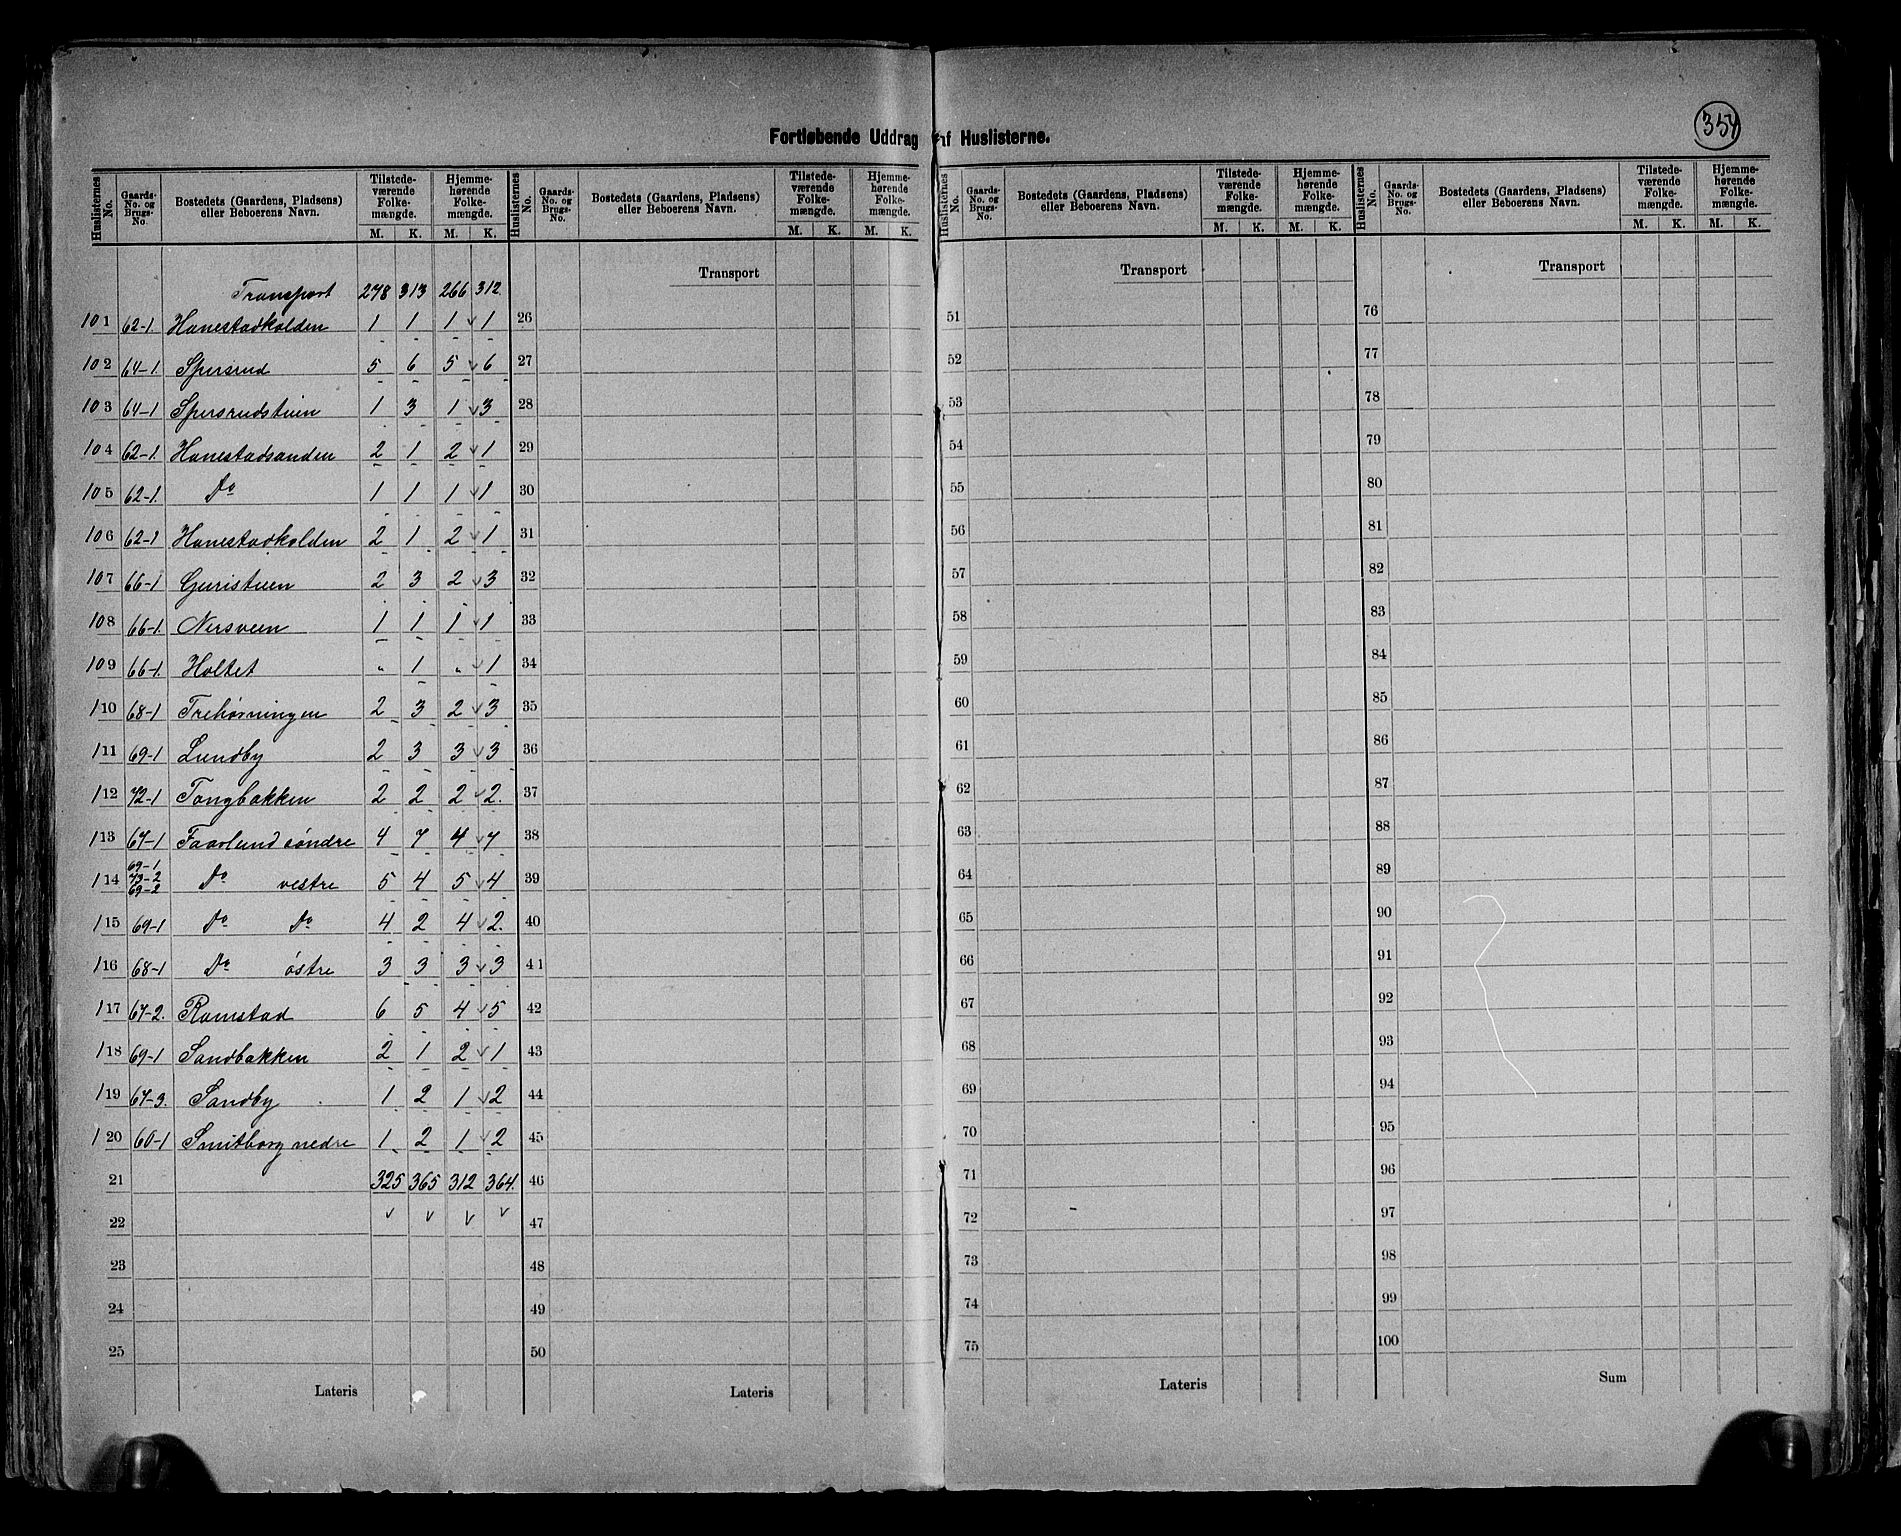 354
Fortløbende Uddrag af Huslisterne.
Huslisternes No. | Gaards-No. og Brugs-No. | Bostedets (Gaardens, Pladsens) eller Beboerens Navn. | Tilstedeværende Folkemængde. M. K. | Hjemmehørende Folkemængde. M. K.
Transport 278 313 266 312.
101 62-1. Hanestadkolden 1 1 1 1
102 64-1. Spersrud 5 6 5 6
103 64-1 Spersrudstuen 1 3 1 3
104 62-1. Hanestadsanden 2 1 2 1
105 62-1. Do 1 1 1 1
106 62-1 Hanestadkolden 2 1 2 1
107 66-1 Guristuen 2 3 2 3
108 66-1. Nersveen 1 1 1 1
109 66-1. Holtet " 1 " 1
110 68-1 Trehørningen 2 3 2 3
111 69-1 Lundby 2 3 3 3
112 72-1 Tangbakken 2 2 2 2.
113 67-1 Faarlund söndre 4 7 4 7
114 69-1 73-2 69-2 Do vestre 5 4 5 4
115 69-1 Do Do 4 2 4 2.
116 68-1 Do östre 3 3 3 3
117 67-2. Ramstad 6 5 4 5
118 69-1 Sandbakken 2 1 2 1
119 67-3. Sandby 1 2 1 2
120 60-1 Smitborg nedre 1 2 1 2
21 325 365 312 364.
22
23
24
25
Lateris
Huslisternes No. | Gaards-No. og Brugs-No. | Bostedets (Gaardens, Pladsens) eller Beboerens Navn. | Tilstedeværende Folkemængde. M. K. | Hjemmehørende Folkemængde. M. K.
Transport
26
27
28
29
30
31
32
33
34
35
36
37
38
39
40
41
42
43
44
45
46
47
48
49
50
Lateris
Huslisternes No. | Gaards-No. og Brugs-No. | Bostedets (Gaardens, Pladsens) eller Beboerens Navn. | Tilstedeværende Folkemængde. M. K. | Hjemmehørende Folkemængde. M. K.
Transport
51
52
53
54
55
56
57
58
59
60
61
62
63
64
65
66
67
68
69
70
71
72
73
74
75
Lateris
Huslisternes No. | Gaards-No. og Brugs-No. | Bostedets (Gaardens, Pladsens) eller Beboerens Navn. | Tilstedeværende Folkemængde. M. K. | Hjemmehørende Folkemængde. M. K.
Transport
76
77
78
79
80
81
82
83
84
85
86
87
88
89
90
91
92
93
94
95
96
97
98
99
100
Sum